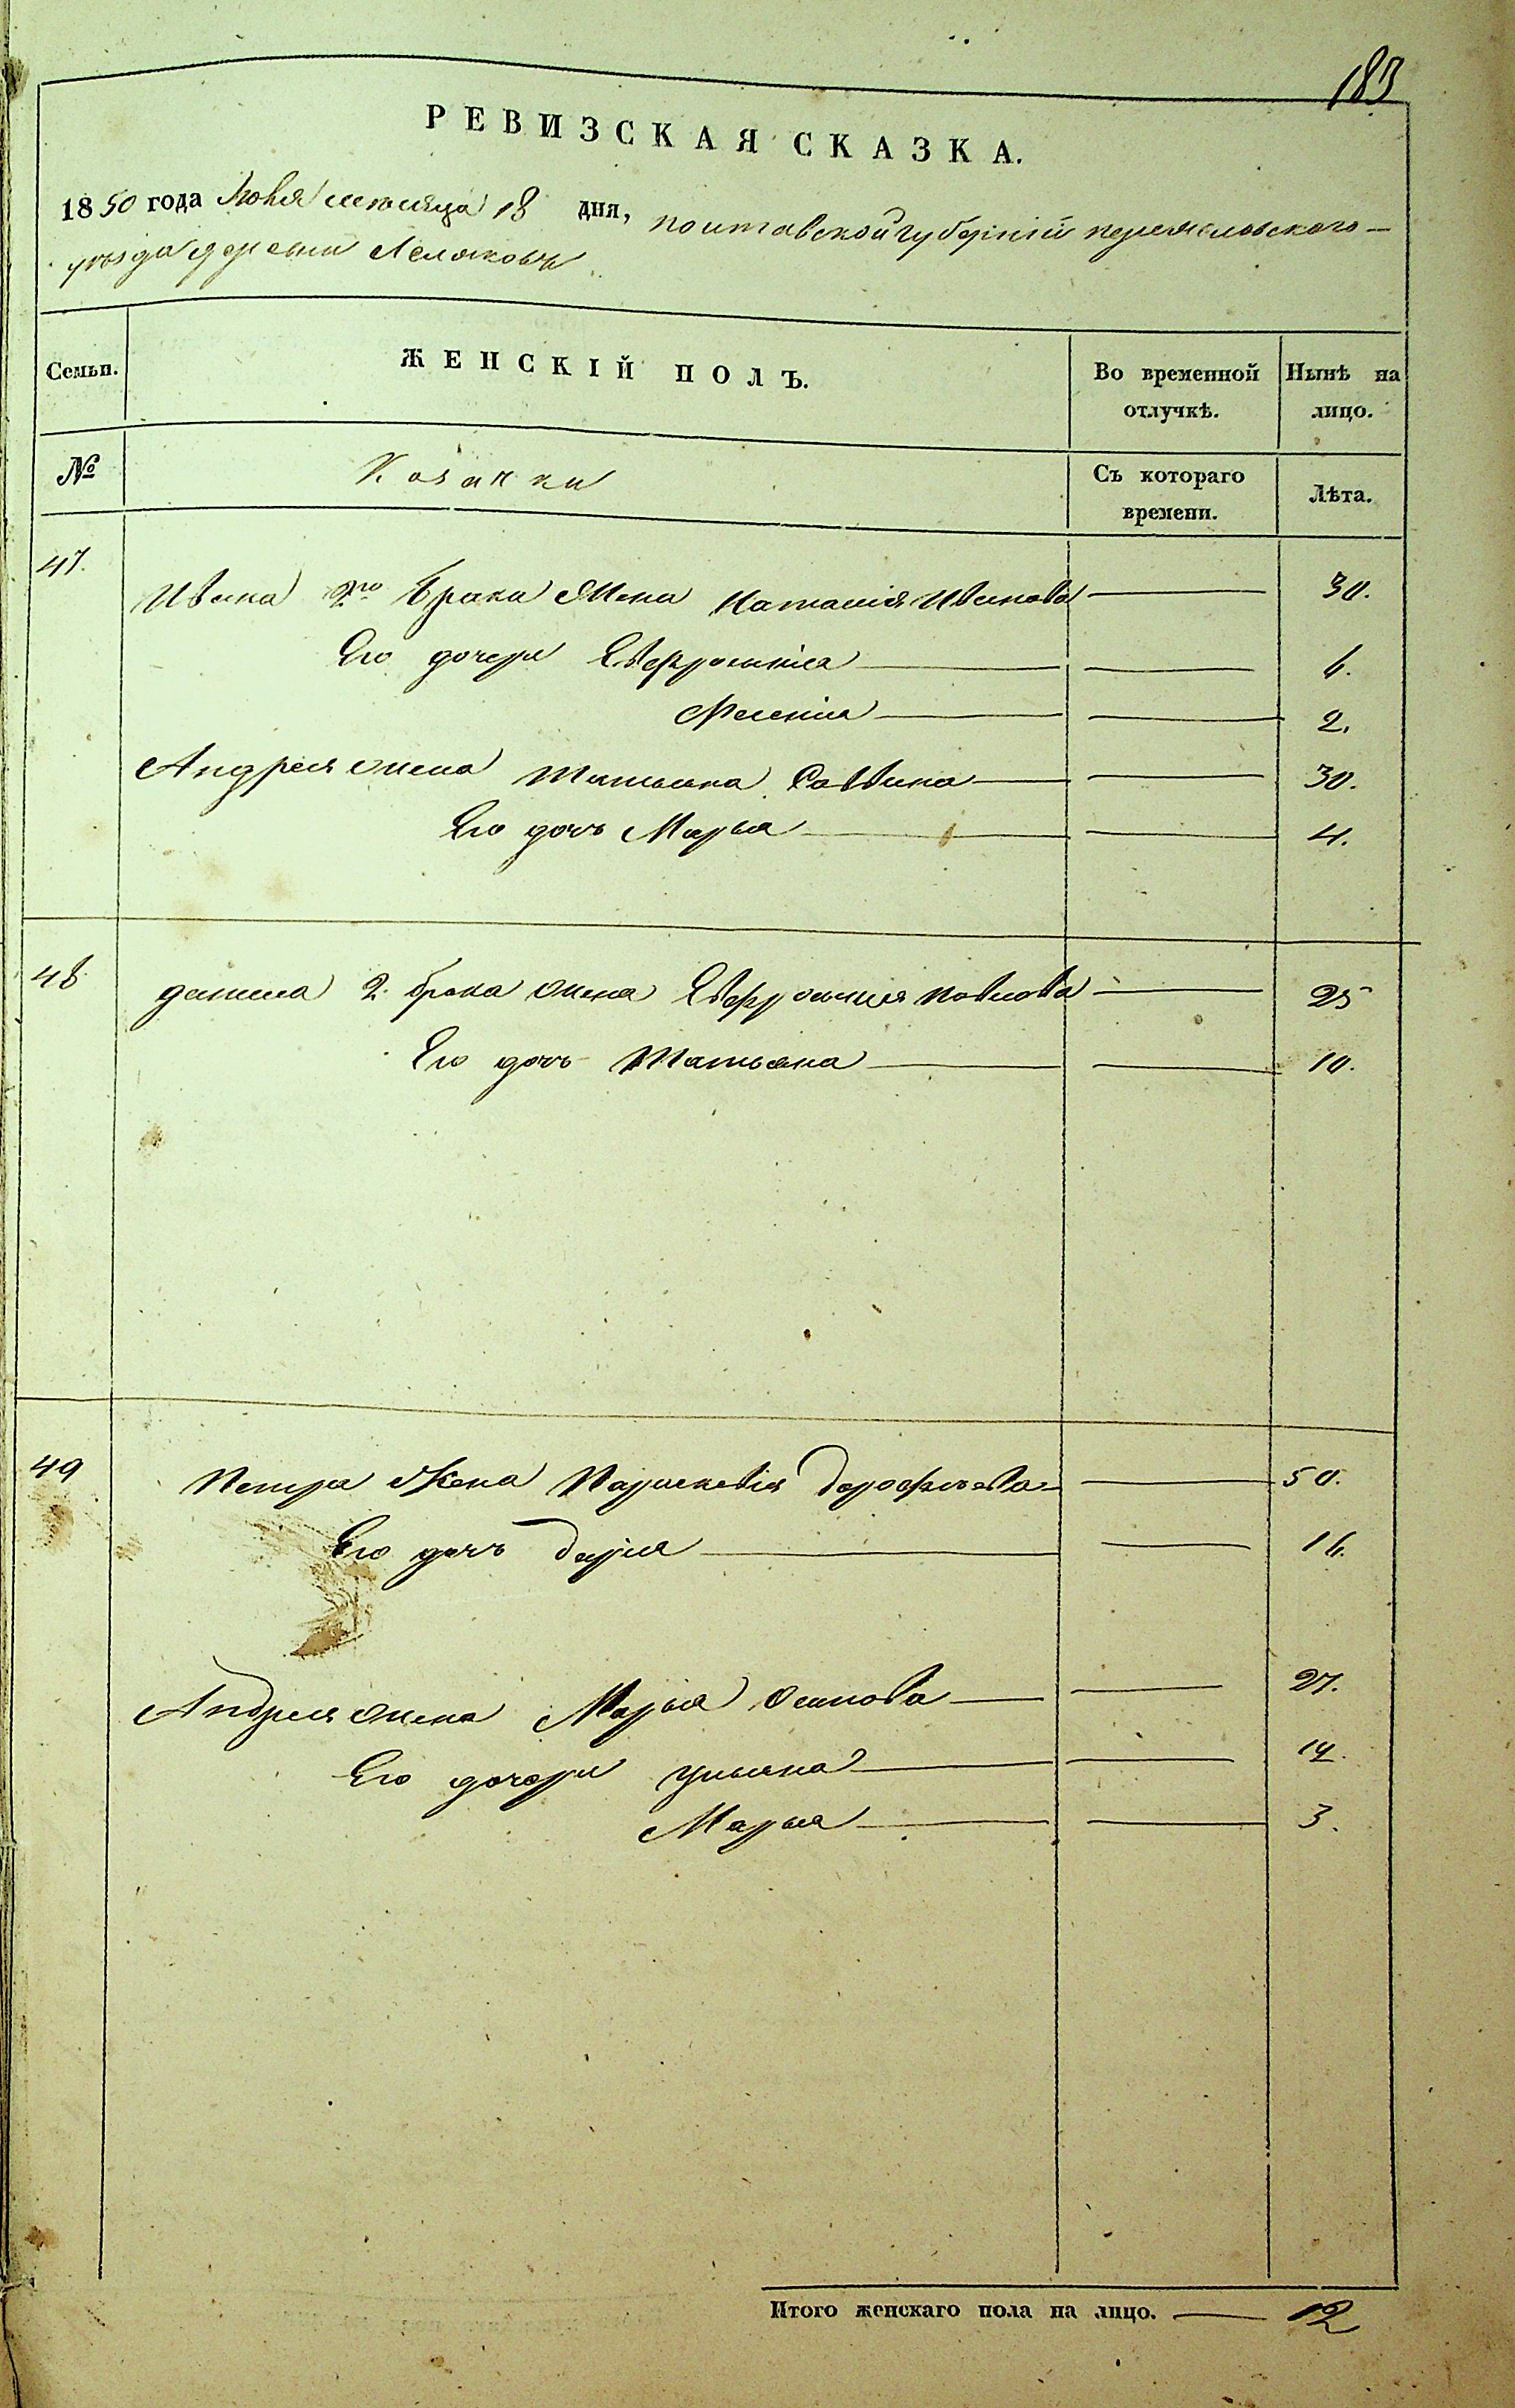 183
РЕВИЗСКАЯ СКАЗКА.
1850 года Июня месяца 18 дня, полтавской губерніи переяславского
уезда деревни Леляковъ
Семьи. ЖЕНСКІЙ ПОЛЪ. Во временной отлучкѣ. Нынѣ на лицо.
№ Козачки Съ котораго времени. Лѣта.
47. Ивана 2го брака жена Наталія Иванова 30.
Его дочери Евфросинія 6.
Фесенія 2.
Андрея жена Татьяна Саввина 30.
Его дочь Марья 4.
48 данила 2. брака жена Евфросинія павлова 25
Его дочь Татьяна 10.
49 Петра жена Параскевія дорофѣева 50.
Его дочь дарія 16.
Андрея жена Марья Осипова 27.
Его дочери ульяна 14.
Марья 3.
Итого женскаго пола на лицо. 12